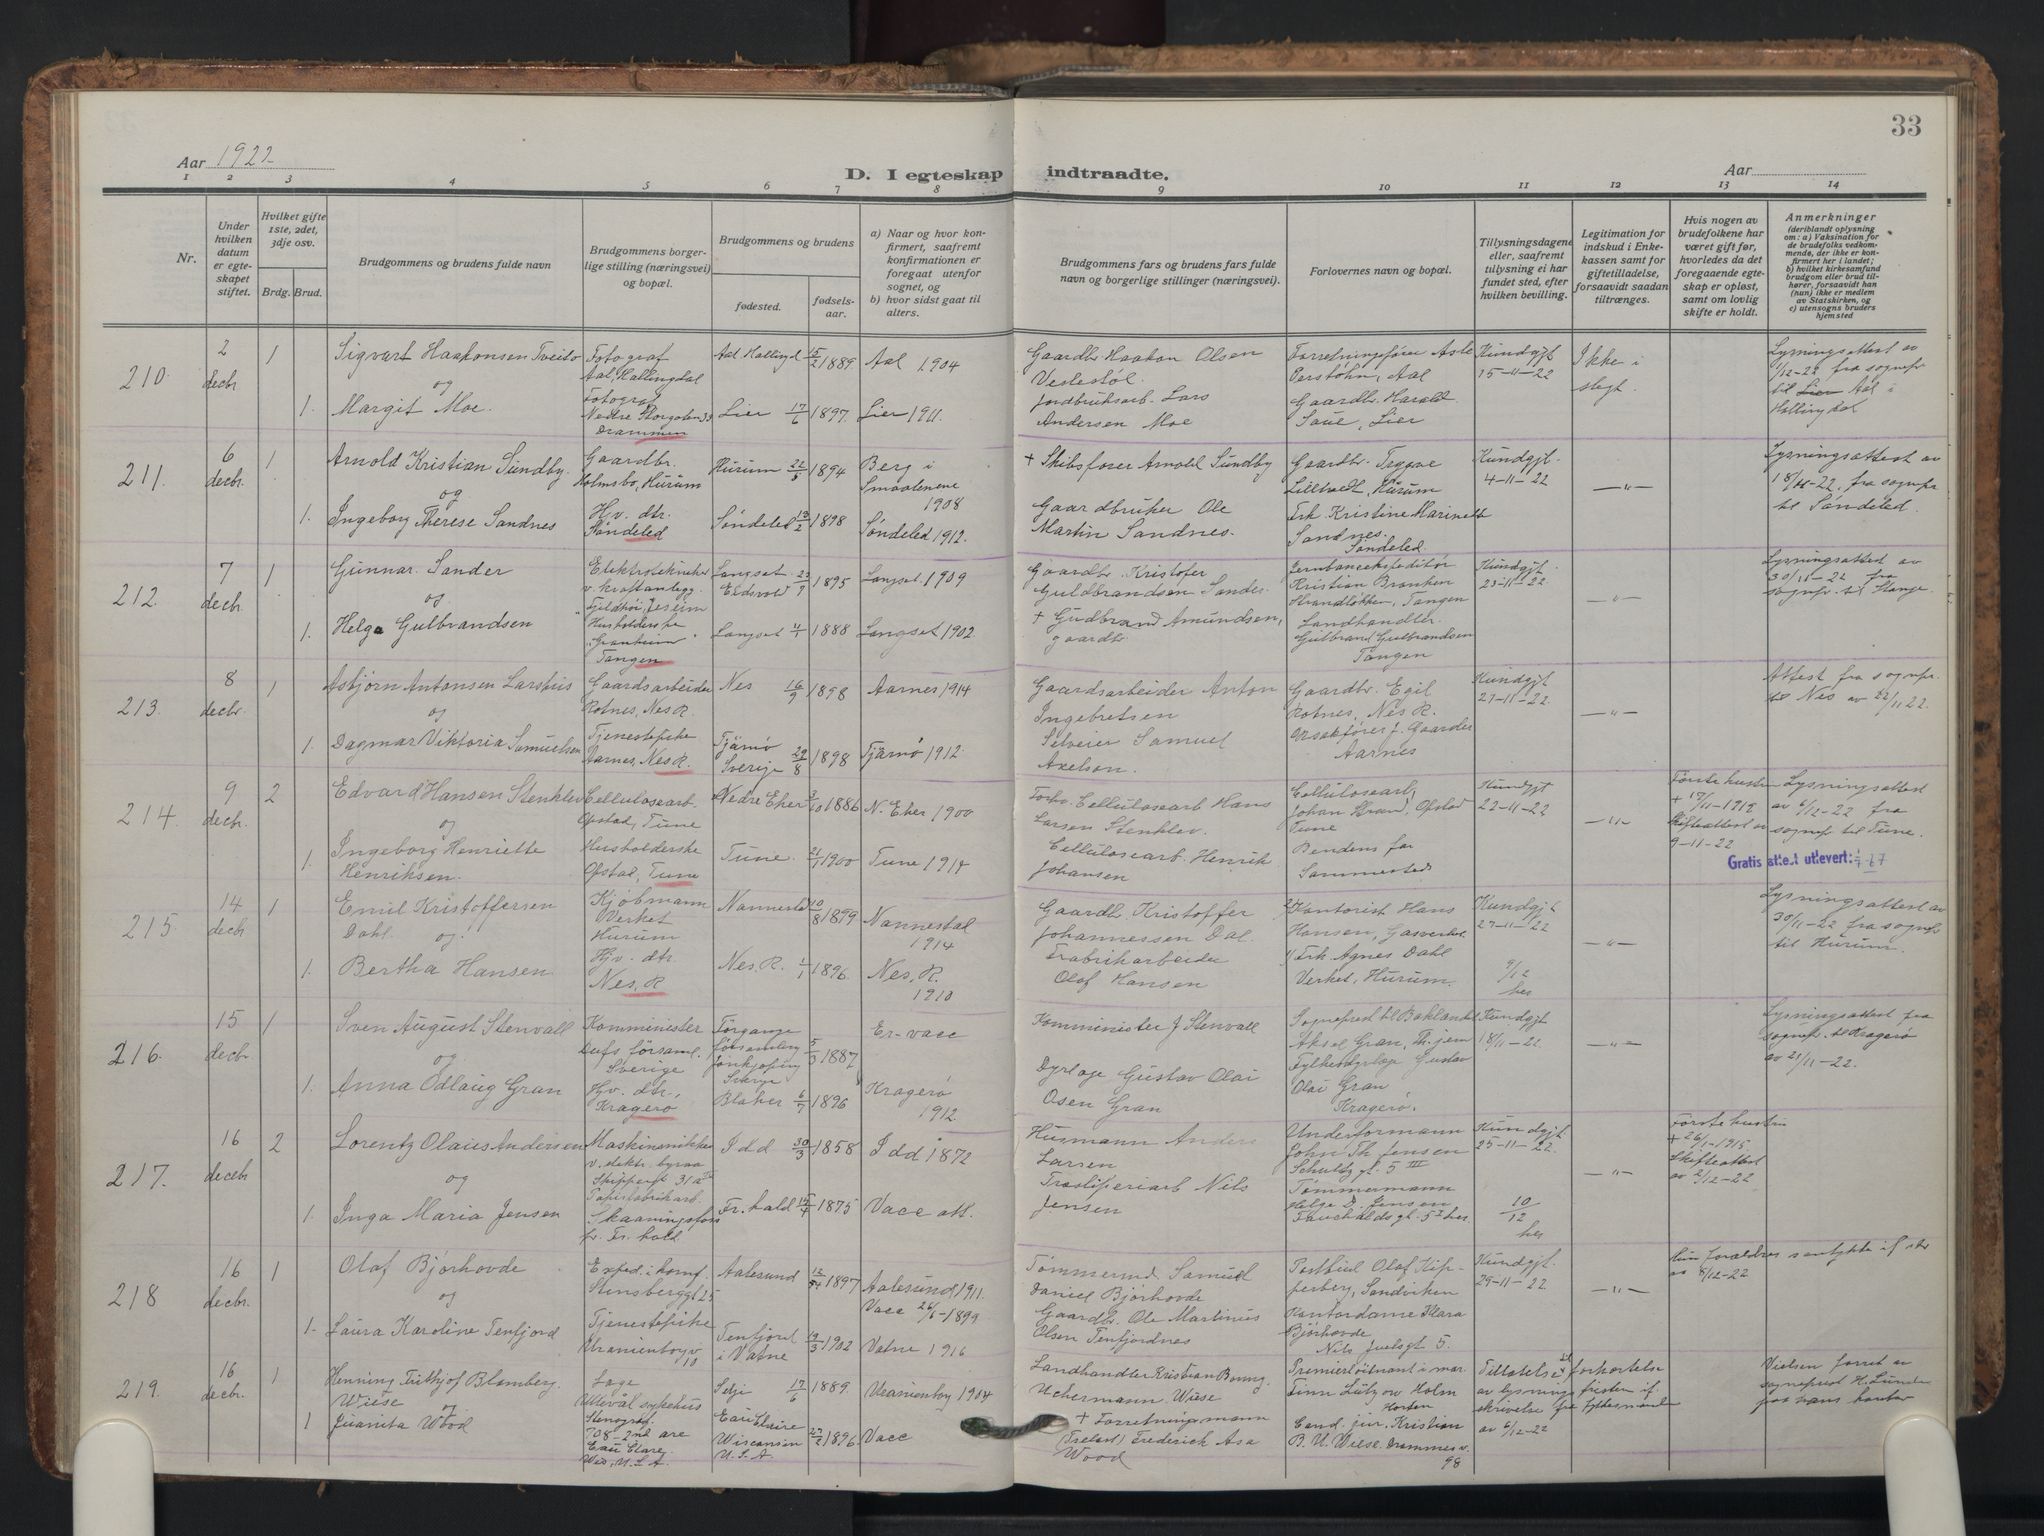 33
Aar 1922
D. I egteskap indtraadte.
Aar
1 2 3 4 5 6 7 8 9 10 11 12 13 14
Nr.
Under hvilken datum er egteskapet stiftet.
Hvilket gifte 1ste, 2det, 3dje osv.
Brdg. Brud.
Brudgommens og brudens fulde navn
Brudgommens borgerlige stilling (næringsvei) og bopæl.
Brudgommens og brudens
fødested.
fødselsaar.
a) Naar og hvor konfirmert, saafremt konfirmationen er foregaat utenfor sognet, og
b) hvor sidst gaat til alters.
Brudgommens fars og brudens fars fulde navn og borgerlige stillinger (næringsvei).
Forlovernes navn og bopæl.
Tillysningsdagene eller, saafremt tillysning ei har fundet sted, efter hvilken bevilling.
Legitimation for indskud i Enkekassen samt for giftetilladelse, forsaavidt saadan tiltrænges.
Hvis nogen av brudefolkene har været gift før, hvorledes da det foregaaende egteskap er opløst, samt om lovlig skifte er holdt.
Anmerkninger
(deriblandt oplysning om: a) Vaksination for de brudefolks vedkommende, der ikke er konfirmert her i landet; b) hvilket kirkesamfund brudgom eller brud tilhører, forsaavidt han (hun) ikke er medlem av Statskirken, og c) utensogns bruders hjemsted
210. 2 decbr 1
Sigvart Haakonsen Tveito
og
1. Margit Moe.
Fotograf
Aal, Hallingdal
Fotograf
Nedre Storgaten 33
Drammen
Aal Hallingd 15/2 1889. Aal 1904
Lier 17/6 1897. Lier 1911.
Gaardbr. Haakon Olsen
Vestestøl.
Jordbruksarb. Lars
Andersen Moe
Forretningsfører Asle
Perstøhn, Aal
Gaardbr. Harald
Saue, Lier
Kundgjt
15-11-22
Ikke i
slegt.
Lysningsattest av
/12-22 fra sognepr
til Lier Aal i
Hallingdal
211. 6 decbr. 1
Arnold Kristian Sundby.
og
1. Ingeborg Therese Sandnes
Gaardbr.
Holmsbo, Hurum
Hv. dtr.
Søndeled
Hurum 22/5 1894 Berg i
Smaalenene
1908
Søndeled 13/2 1898 Søndeled 1912.
+ Skibsfører Arnold Sundby
Gaardbruker Ole
Martin Sandnes.
Gaardbr. Trygve
Lilltvedt, Hurum
Frk. Kristine Marinett
Sandnes.
Søndeled.
Kundgjt.
4-11-22
—"—
Lysningsattest av
18/11-22. fra sognepr
til Søndeled.
212. 7 decbr. 1
Gunnar Sander
og
1. Helga Gulbrandsen
Elektrotekniker
v. Kraftanlegg.
Fjeldhöi, Jesseim
Husholderske
"Granheim"
Tangen
Langset Eidsvold 23/9 1895 Langset 1909
Langset 4/1 1888 Langset 1902
Gaardbr. Kristofer
Guldbrandsen Sander.
+ Gudbrand Amundsen,
gaardbr.
Jernbaneekspeditör
Kristian Bronken
Strandløkken, Tangen
Landhandler.
Gulbrand Gulbrandsen
Tangen
Kundgjt.
23-11-22.
—"—
Lysningsattest av
30/11-22 fra
sognepr. til Stange.
213. 8 decbr. 1
Asbjørn Antonsen Larshus
og
1. Dagmar Viktoria Samuelsen
Gaardsarbeider
Rotnes, Nes R.
Tjenestepike
Aarnes, Nes R.
Nes 16/9 1898 Aarnes 1914
Tjärnø
Sverige 29/8 1898 Tjärnø 1912.
Gaardsarbeider Anton
Ingebretsen
Selveier Samuel
Axelson.
Gaardbr. Egil
Rotnes, Nes R.
Aarnes
Kundgjt
27-11-22.
—"—
Attest fra sognepr.
til Nes av 22/11 22.
214. 9 decbr. 2
Edvard Hansen Stenklev
og
1. Ingeborg Henriette
Henriksen.
Cellulosearb.
Opstad, Tune
Husholderske
Opstad, Tune
Nedre Eker 3/10 1886 N. Eker 1900
Tune. 21/1 1900 Tune 1914
Forhv. Cellulosearb Hans
Larsen Stenklev.
Cellulosearb. Henrik
Johansen
Cellulosearb,
Johan Brand, Opstad
Tune
Kundgjt
22-11-22
—"—
Første hustru
+ 17/11-1918
Skifteattest av
9-11-22
Lysningsattest
av 6/12-22 fra
sognepr til Tune.
Gratis attest utlevert:
215. 14 decbr 1
Emil Kristoffersen
Dahl. og.
1. Bertha Hansen
Kjøbmann
Verket
Hurum
Hjv. dtr.
Nes, R
Nannestad 10/8 1899 Nannestad
1914
Nes, R. 1/1 1896. Nes, R.
1910
Gaardbr Kristoffer
Johannessen Dal.
Fabrikarbeider
Olaf Hansen
Kontorist Hans
Hansen, Gasverket.
Frk. Agnes Dahl
Verket, Hurum.
Kundgjt
27-11-22
9/12
hes
—"—
Lysningsattest av
30/11-22 fra sognepr
til Hurum.
216. 15 decbr. 1
Sven August Stenvall
og.
1. Anna Edlaug Gran
Komminister
Sverige
Hv. dtr,
Kragerø
Jönkjøping
Sverge 5/3 1887 Er-vacc
Blaker 6/7 1896 Kragerø
1912.
Komminister J Stenvall
Dyrlæge Gustav Olai
Osen Gran
Sogneprest til Baklandet
Aksel Gran, Th.jem
Fylkesdyrlæge Gustav
Olai Gran
Kragerø.
Kundgjt
18/11-22
—"—
Lysningsattest fra
sognepr. til Kragerø
av 21/11-22.
217. 16 decebr 2
Lorentz Olaus Andersen
og
1. Inga Maria Jensen
Papirfabrikarb.
Skaaningsfoss
p. Fr. hald
Idd 30/3 1858 Idd 1872
Fr. hald 15/4 1875 Vacc att.
Husmann Anders
Larsen
Nils
Jensen
Underformann
John Th Jensen
Schultz gt. 5 III
Tømmermann
Helge D. Jensen
Kundgjt.
25-11-22.
10/12
hes
—"—
Første hustru
+ 26/1-1915
Skifteattest
av 2/12-22
218 16 decbr. 1
Olaf Bjørhovde
og
1. Laura Karoline Tenfjord
Stensberggt 25
Tjenestepike
Uranienborgv
10
Aalesund 1897 Aalesund 1911.
Vacc 26/6-1899
Tenfjord
i Vatne 19/3 1902 Vatne 1916
Tømmermd Samuel
Daniel Bjørhovde
Gaardbr. Ole Martinus
Olsen Tenfjordnes
Postbud Olaf Kip-
perberg, Sandviken
Kontordame Klara
Bjørhovde
Nils Juelsgt 5.
Kundgjt.
29-11-22
—"—
Hun forældres samtykke
av 8/12-22
219. 16 decbr. 1
Henning Frithjof Blomberg.
Wiese og.
1 Juanita Wood
Læge
Ullevål sykehus
Stenograf.
708-2nd are
Eau Clare,
Wis, U.S.A.
Selje 17/6 1889. Uranienborg 1904
Eau Claire
Wisconsin
U.S.A 27/2 1896. Vacc
Landhandler Kristian Bonng.
Uchermann Wiese
+ Forretningsmann
Frederick Asa
Wood
Premierløitnant i mar.
Finn Lützow Holm
Horten
Cand. jur. Kristian
B. U. Wiese. Drammensv.
98
Tillatelse til forkortelse
av lysningsfristen if.
skrivelse fra fylkesmand
av 6/12-22
Vielsen forret av
sogneprest H. Lunde
paa hans kontor